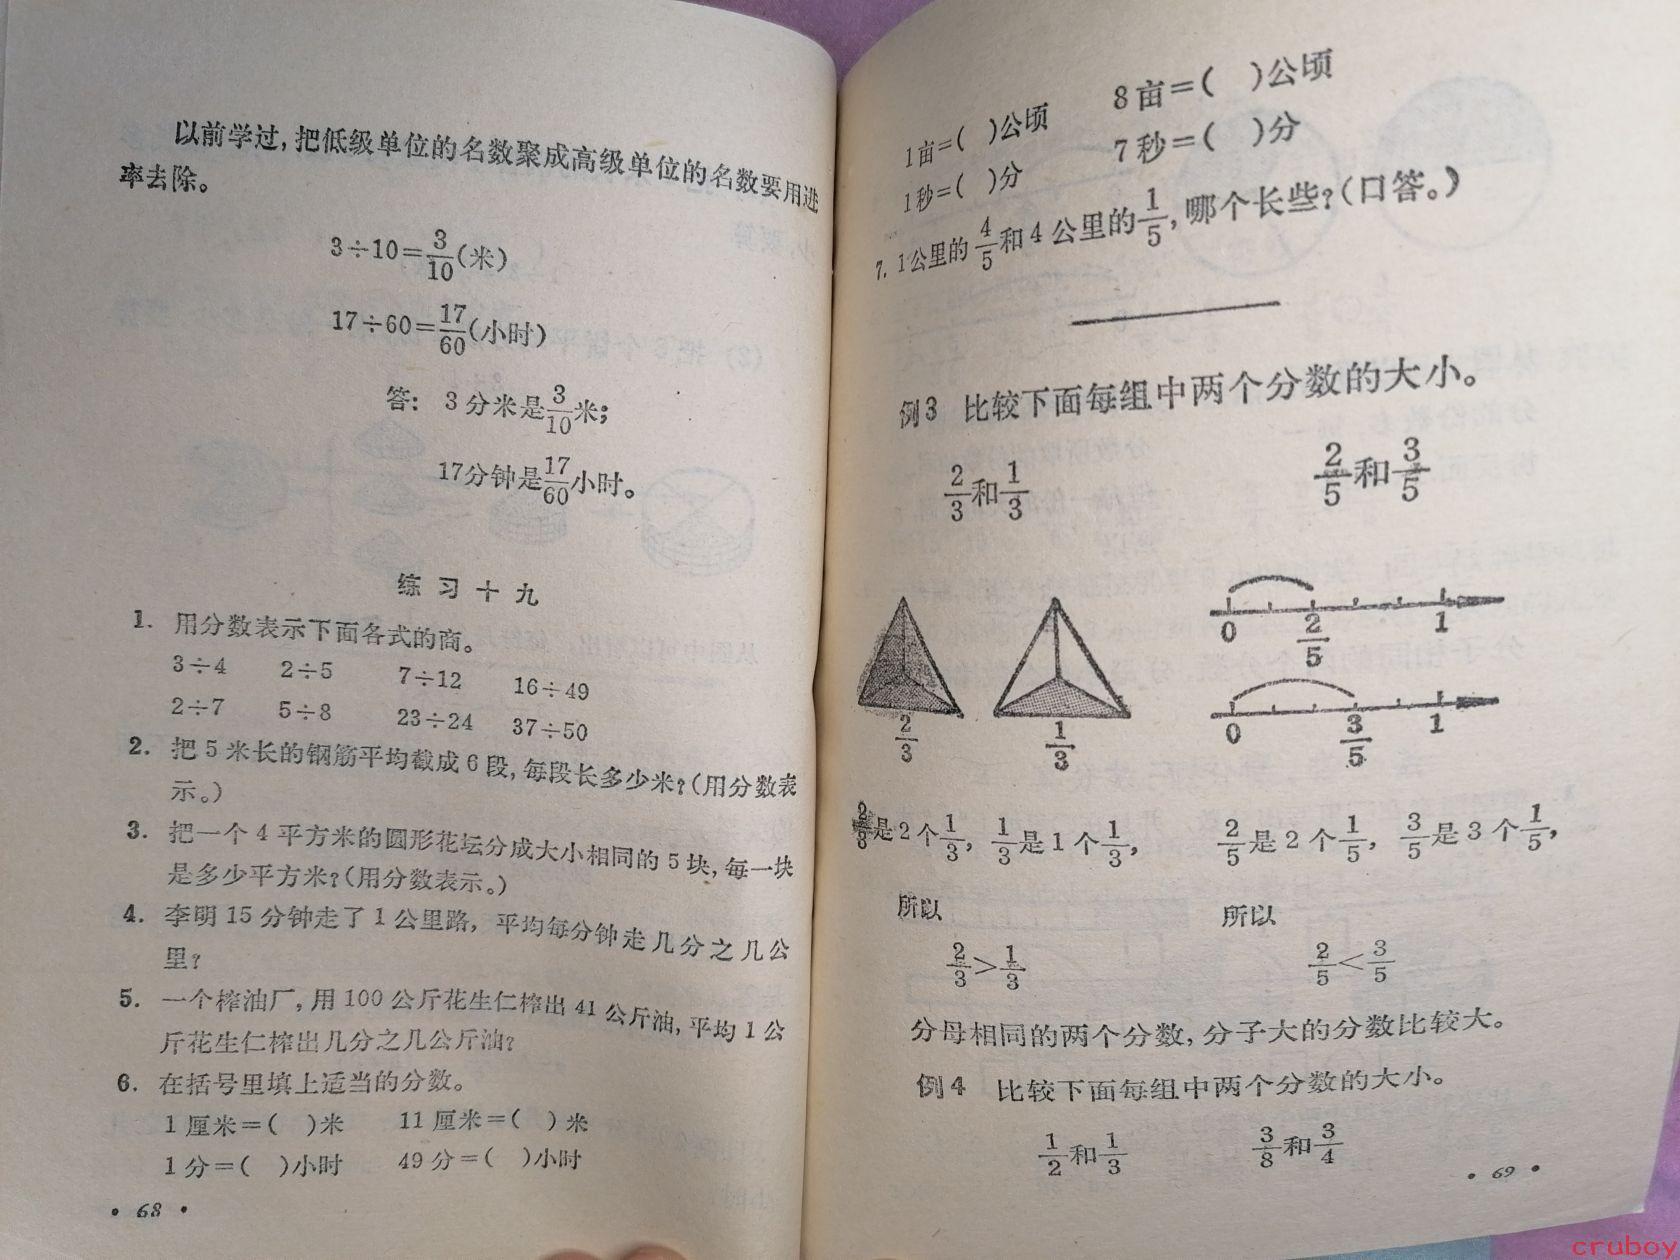 以前学过,把低级单位的名数聚成高级单位的名数要用进
率去除。
3÷10=3/10(米)
17÷60=17/60(小时)
答: 3分米是3/10米;
17分钟是17/60小时。
练习十九
1. 用分数表示下面各式的商。
3÷4 2÷5 7÷12 16÷49
2÷7 5÷8 23÷24 37÷50
2. 把5米长的钢筋平均截成6段,每段长多少米?(用分数表
示。)
3. 把一个4平方米的圆形花坛分成大小相同的5块,每一块
是多少平方米?(用分数表示。)
4. 李明15分钟走了1公里路, 平均每分钟走几分之几公
里?
5. 一个榨油厂,用100公斤花生仁榨出41公斤油,平均1公
斤花生仁榨出几分之几公斤油?
6. 在括号里填上适当的分数。
1厘米=( )米 11厘米=( )米
1分=( )小时 49分=( )小时
• 68 •
1亩=( )公顷 8亩=( )公顷
1秒=( )分 7秒=( )分
7. 1公里的4/5和4公里的1/5,哪个长些?(口答。)
例3 比较下面每组中两个分数的大小。
2/3和1/3 2/5和3/5
0 2/5 1
0 3/5 1
2/3 1/3
2/3是2个1/3, 1/3是1个1/3, 2/5是2个1/5, 3/5是3个1/5,
所以 所以
2/3>1/3 2/5<3/5
分母相同的两个分数,分子大的分数比较大。
例4 比较下面每组中两个分数的大小。
1/2和1/3 3/8和3/4
• 69 •
cruboy